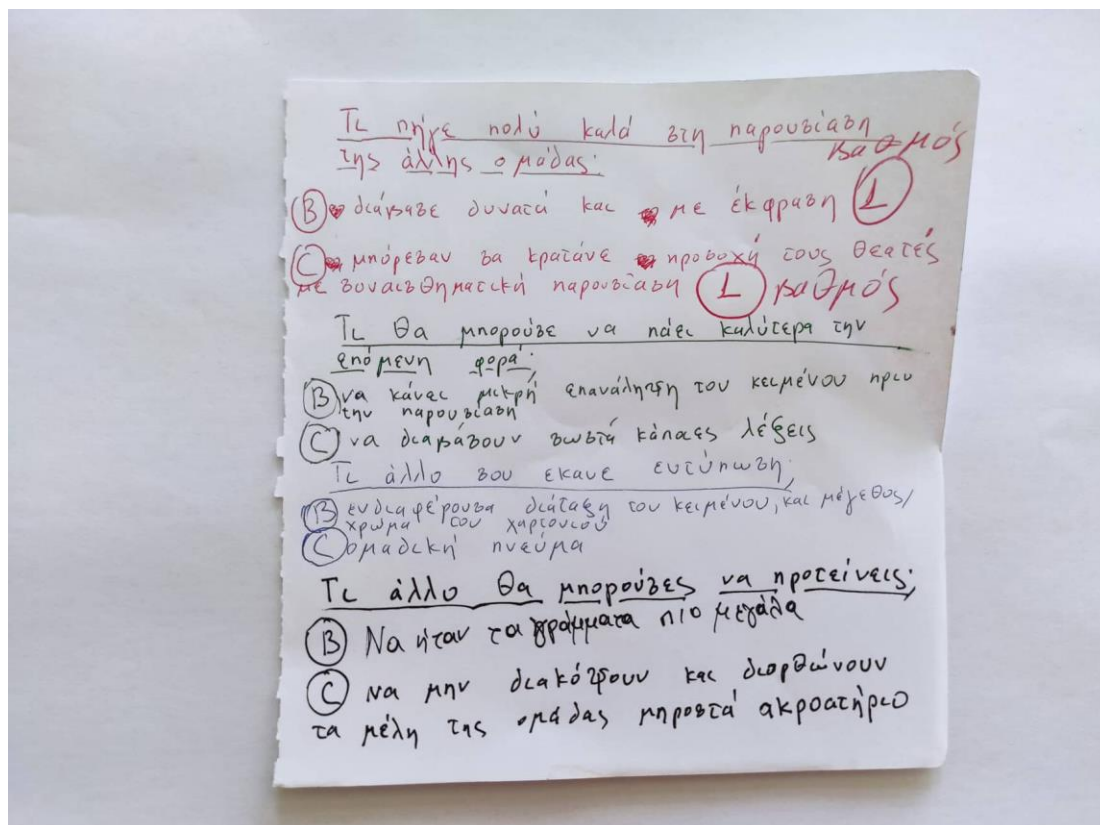 Τι πήγε πολύ καλά στη παρουσίαση
της άλλης ομάδας; βαθμός
Β διάβασε δυνατά και με έκφραση 1
C μπόρεσαν να κρατάνε προσοχή τους θεατές
με συναισθηματική παρουσίαση 1 βαθμός
Τι θα μπορούσε να πάει καλύτερα την
επόμενη φορά;
Β να κάνει μικρή επανάληψη του κειμένου πριν
την παρουσίαση
C να διαβάσουν σωστά κάποιες λέξεις
Τι άλλο σου εκανε εντύπωση;
Β ενδιαφέρουσα διάταξη του κειμένου, και μέγεθος/
χρώμα του χαρτονιού
C ομαδική πνεύμα
Τι άλλο θα μπορούσες να προτείνεις;
Β Να ήταν τα γράμματα πιο μεγάλα
C να μην διακόψουν και διορθώνουν
τα μέλη της ομάδας μπροστά ακροατήριο